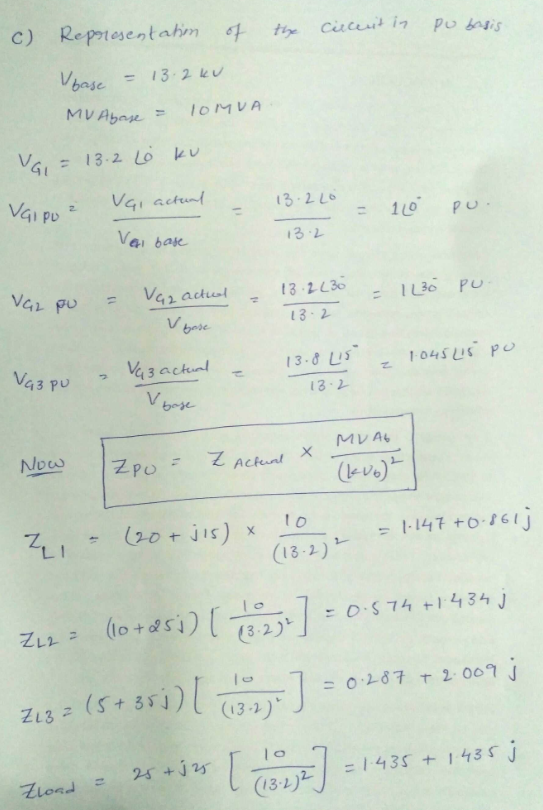 c) Representation of the circuit in PU basis
V base = 13.2 kV
MVA base = 10 MVA
V G1 = 13.2 ∠0° kV
VG1 PU = VG1 actual / VG1 base = 13.2∠0° / 13.2 = 1∠0° PU.
VG2 PU = VG2 actual / V base = 13.2∠30° / 13.2 = 1∠30° PU.
VG3 PU = VG3 actual / V base = 13.8 ∠15° / 13.2 = 1.045∠15° PU
Now Z PU = Z Actual × MVAb / (kVb)²
Z L1 = (20 + j15) × 10 / (13.2)² = 1.147 + 0.861j
ZL2 = (10+25j) [ 10 / (13.2)² ] = 0.574 + 1.434 j
ZL3 = (5 + 35j) [ 10 / (13.2)² ] = 0.287 + 2.009 j
Zload = 25 + j25 [ 10 / (13.2)² ] = 1.435 + 1.435 j